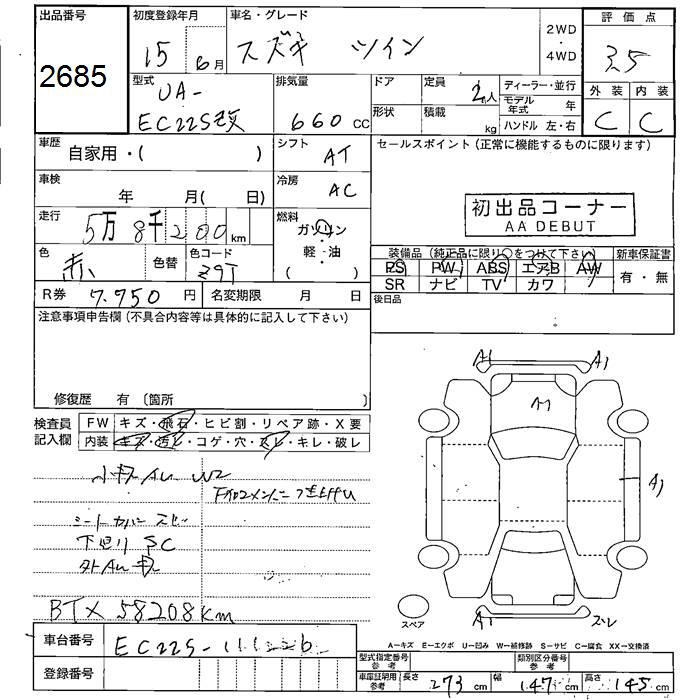 出品番号
2685
初度登録年月
15年6月
車名・グレード
スズキ ツイン
2WD
・
4WD
評価点
3.5
型式
UA-
EC22S改
排気量
660 CC
ドア
形状
定員
2人
積載
kg
ディーラー・並行
モデル年式 年
ハンドル 左・右
外装
C
内装
C
車歴
自家用・( )
シフト
AT
セールスポイント(正常に機能するものに限ります)
初出品コーナー
AA DEBUT
車検
年 月( 日)
冷房
AC
走行
5万8千200km
燃料
ガソリン
軽・油
( )
色
赤
色替
色コード
Z9T
装備品(純正品に限り○をつけて下さい)
PS PW ABS エアB AW
SR ナビ TV カワ
新車保証書
有・無
R券 7.750 円
名変期限 月 日
後日品
注意事項申告欄(不具合内容等は具体的に記入して下さい)
修復歴 有 〔箇所 〕
検査員
記入欄
FW キズ・飛石・ヒビ割・リペア跡・X要
内装 キズ・汚レ・コゲ・穴・スレ・キレ・破レ
小キズAU W2
シートカバー スレ
下廻り SC
BTX 58208km
A1 A1
A1
A1
A1 スレ
スペア
A-キズ E-エクボ U-凹み W-補修跡 S-サビ C-腐食 XX-交換済
車台番号
EC22S-
登録番号
型式指定番号
参考
類別区分番号
参考
車庫証明用
参考
長さ 273 cm
幅 147 cm
高さ 145 cm